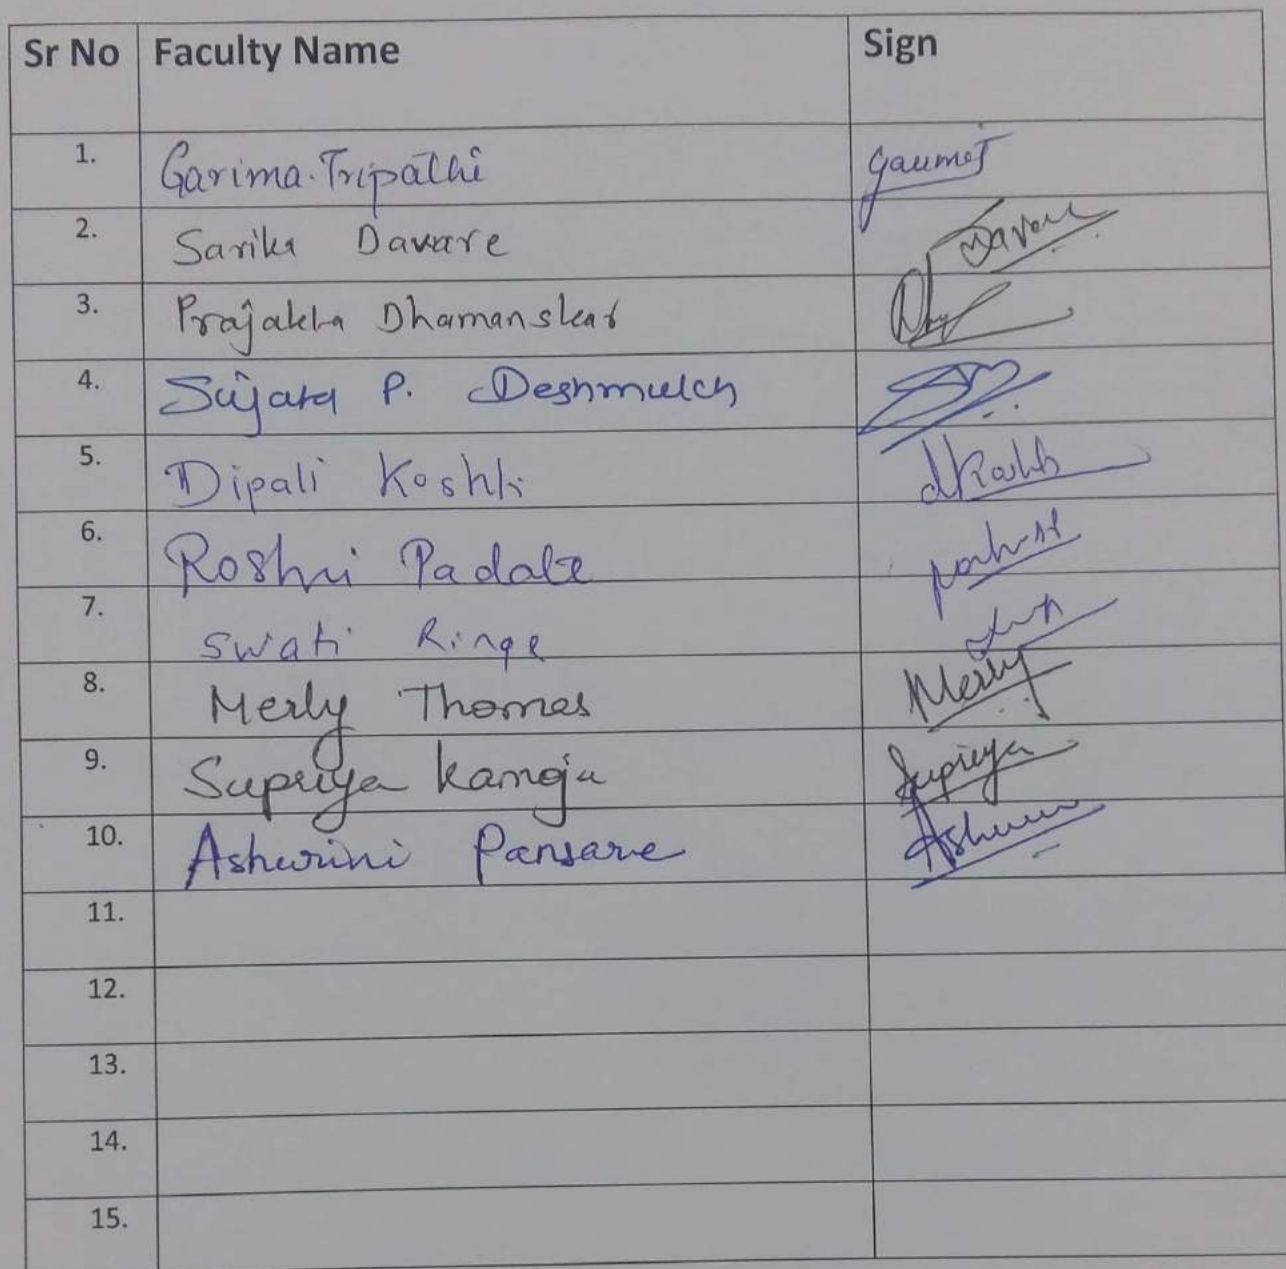 Sr No Faculty Name Sign
1. Garima.Tripathi
2. Sarika Davare Davare
3. Prajakta Dhamanskar
4. Sujata P. Deshmukh
5. Dipali Koshti
6. Roshni Padate
7. Swati Ringe
8. Merly Thomas Merly
9. Supriya Kamoju Supriya
10. Ashwini Pansare
11.
12.
13.
14.
15.